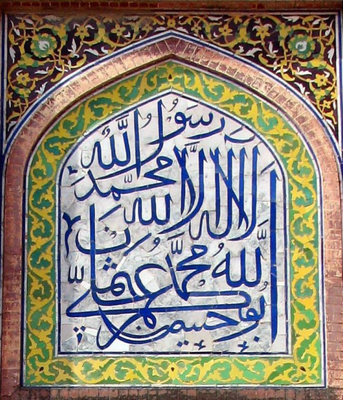 لا اله الا الله محمد رسول الله
الله محمد
ابوبکر عمر عثمان علی
حسین